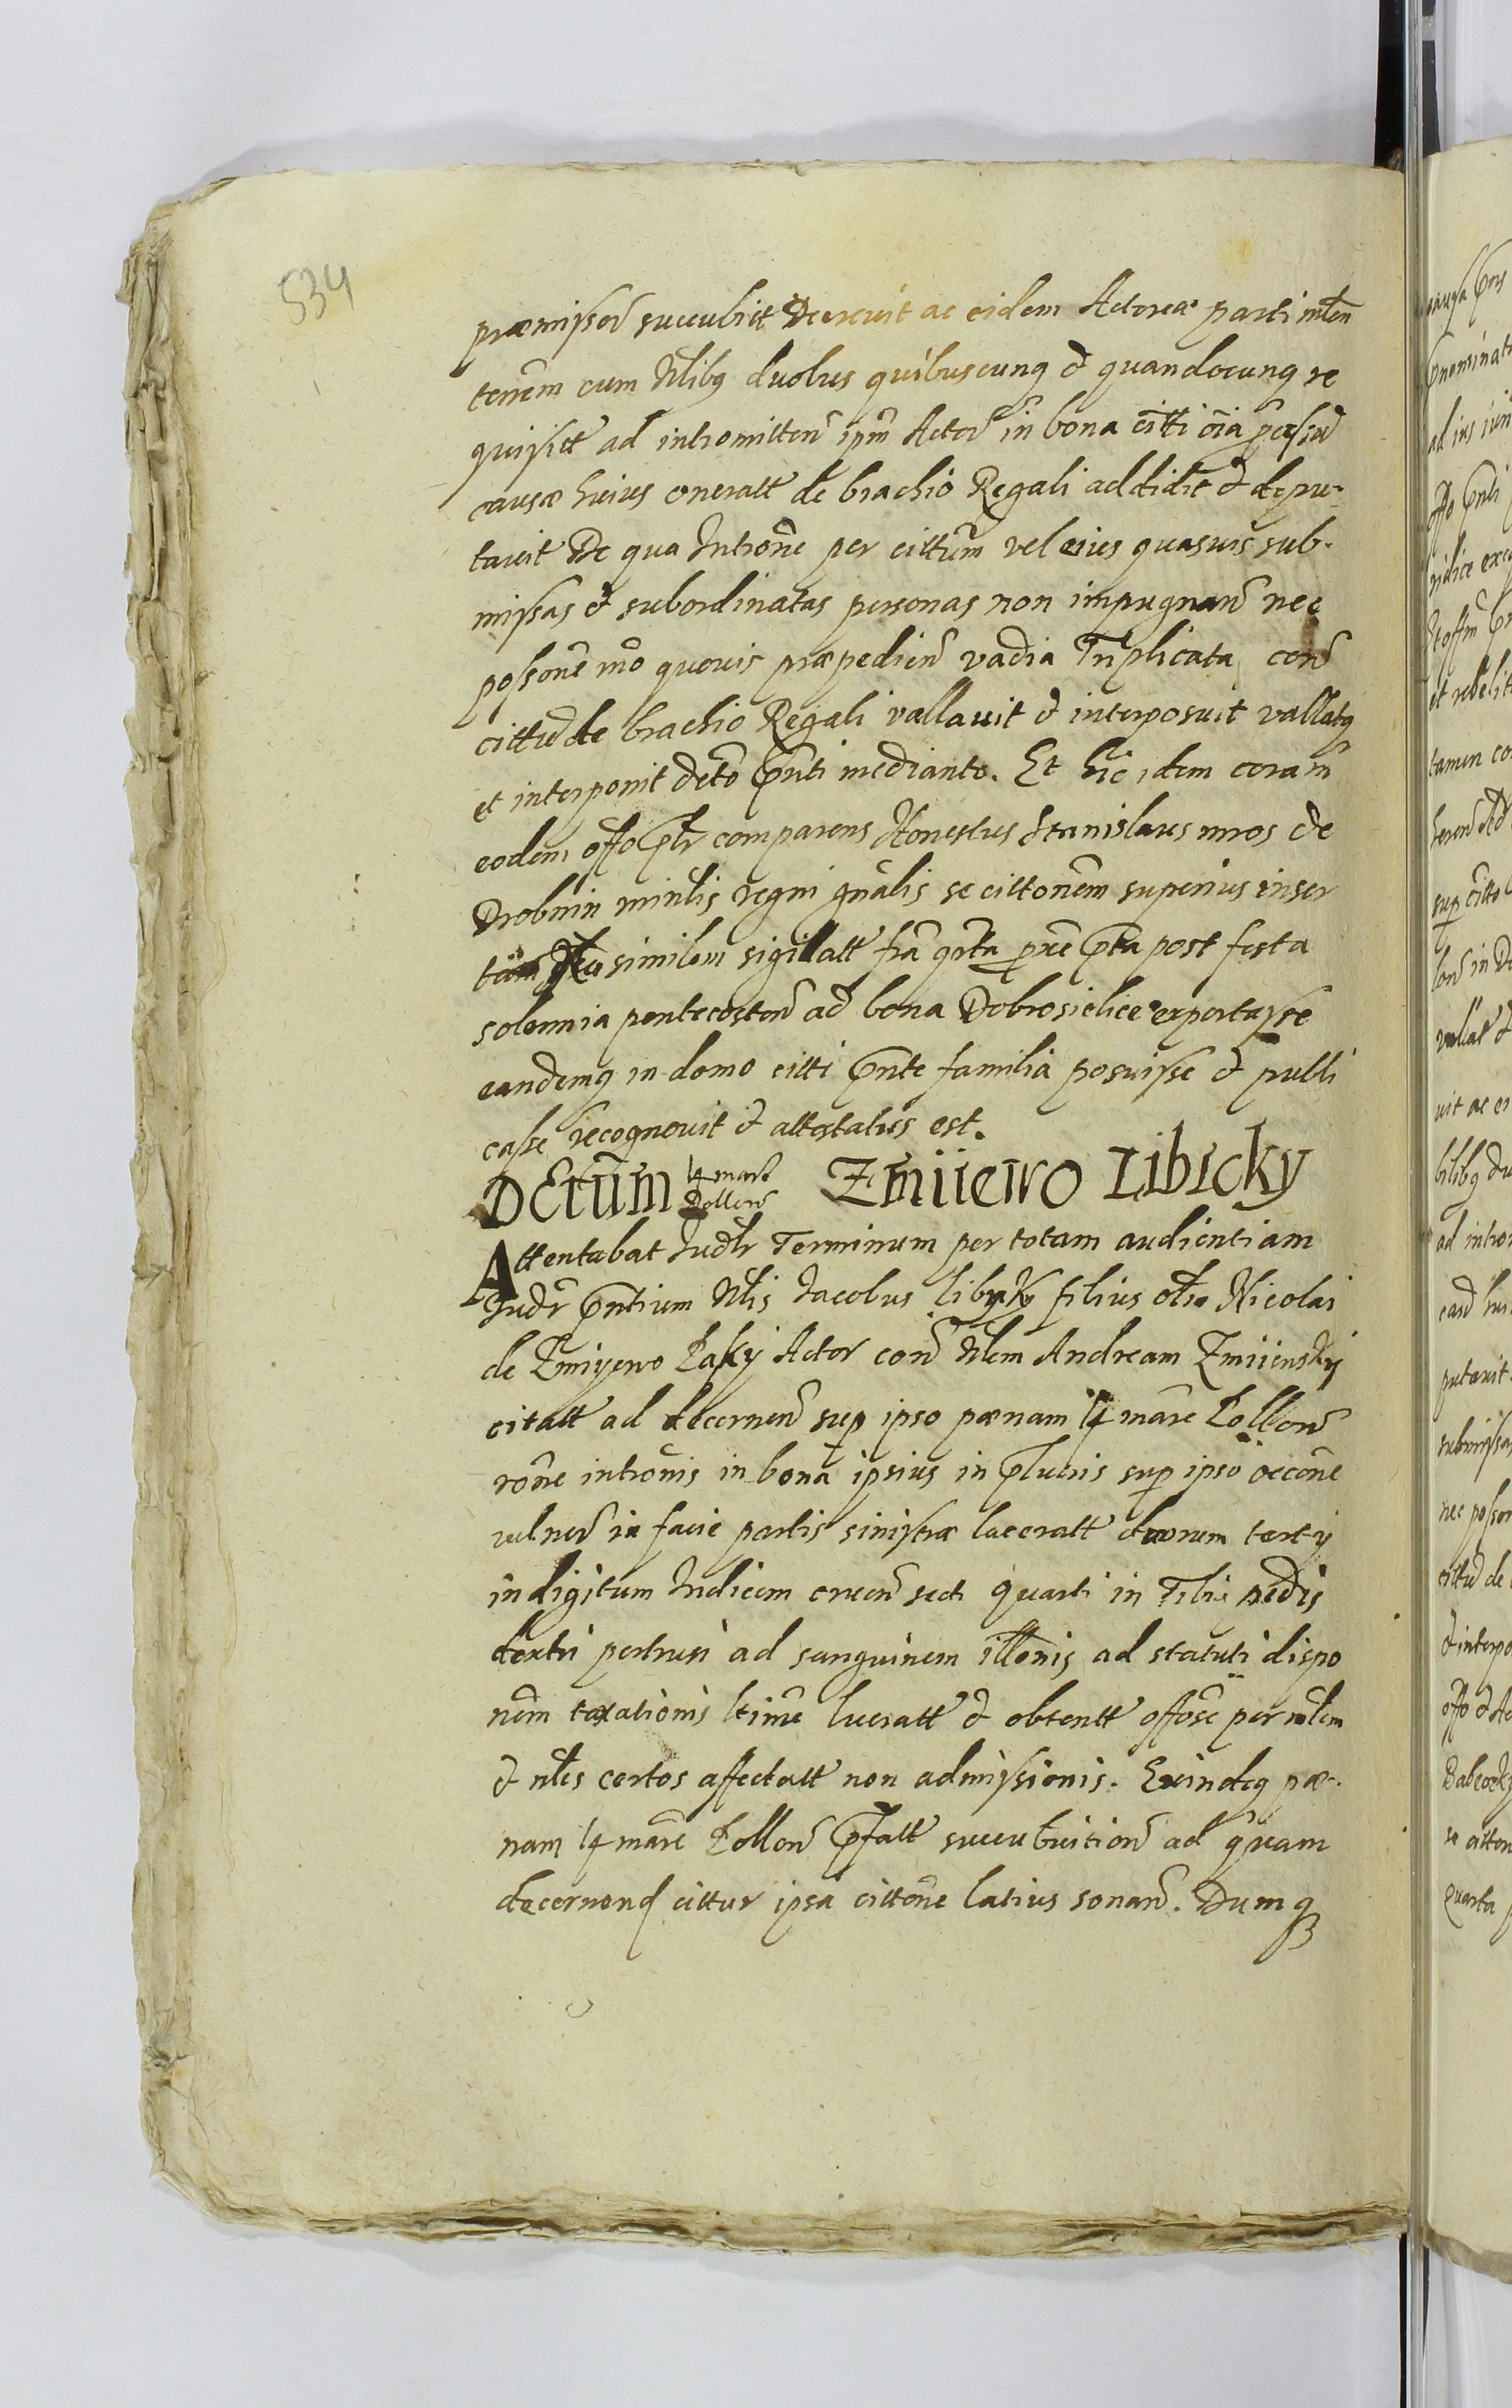 534
præmissor succubitt Decrevit ac eidem Actoreæ parti mlen
tenem cum Nlibq duobus quibuscunq et quandocunq re
quisitt ad intromitten ipm Actor in bona citti oia
causæ huius oneratt de brachio Regali addidit et depu-
tavit De qua Introne per cittum vel eius quasuis sub-
missas et subordinatas personas non impugnan nec
possone mo quouis præpedien vadia Triplicata con
cittu de brachio Regali vallauit et interposuit vallatq
et interponit deto pnti mediante. Et hic idem coram
eodem offo pltr comparens Honestus Stanislaus mros de
Drobnin minlis regni gnalis se cittonem superius inser
tam similem sigillatt fra qrta pxe pta post festa
solemnia pentecosten ad bona Dobrosielice exportasse
eandemq in domo citti pnte familia posuisse et publi
casse recognouit et attestatus est.
Decretum 14 marc Pollen Zmiiewo Libicky
Attentabat Judlr Terminum per totam audientiam
Judr pntium Nlis Jacobus libycky filius olim Nicolai
de Zmiyewo Paky Actor con Nlem Andream Zmiiensky
citatt ad decernen sup ipso pænam 14 marc Pollen
rone intronis in bona ipsius in plucris sup ipso occone
vulner in facie partis sinistræ laceratt duorum tertij
in digitum Indicem crucen secti quarti in Tibia pedis
dextri pertusi ad sanguinem illonis ad statuti dispo
nem taxationis ltime lucratt et obtentt offose per mlem
et nles certos affectatt non admissionis. Exindeq pæ-
nam 14 marc Pollen pfatt succubuition ad quam
decernend cittur ipsa cittone latius sonan. Dumq